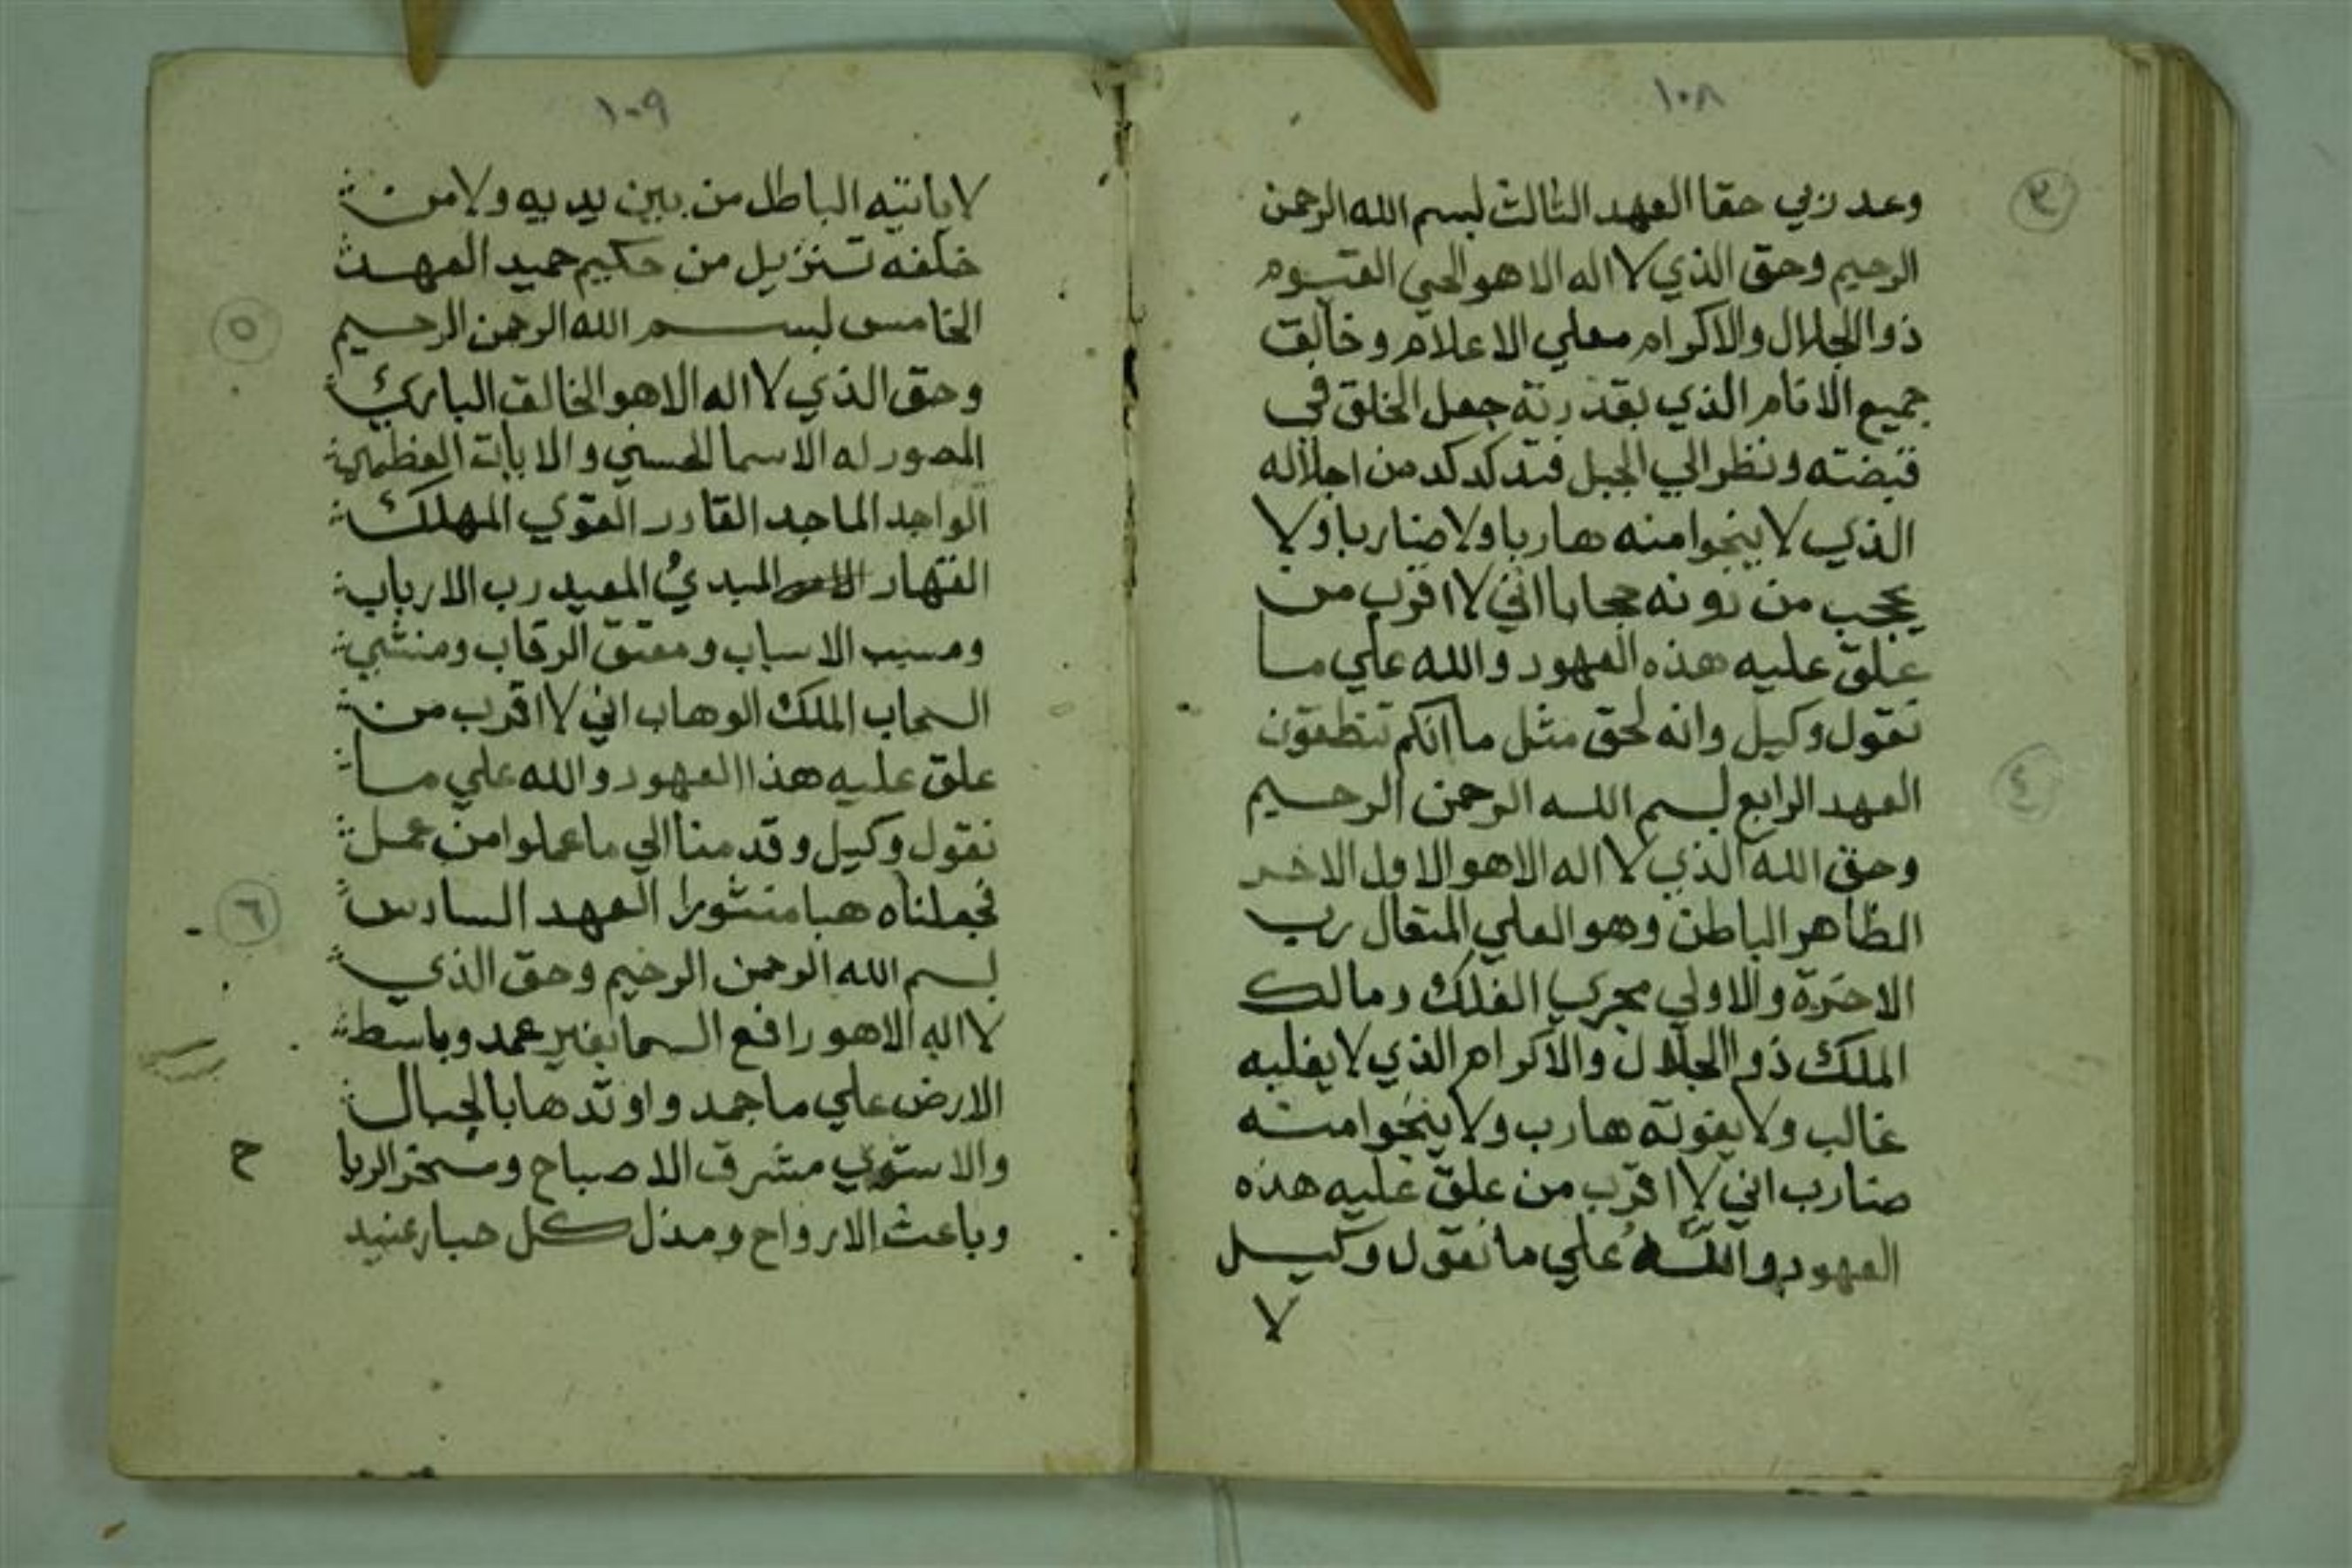 ١٠٨
٣
وعد ربي حقا العهد الثالث بسم الله الرحمن
الرحيم وحق الذي لا اله الا هو الحي القيوم
ذو الجلال والاكرام معلي الاعلام وخالق
جميع الانام الذي بقدرته جعل الخلق في
قبضته ونظر الي الجبل فتدكدكد من اجلاله
الذي لا ينجوا منه هاربا ولا ضاربا ولا
يحجب من دونه حجابا اني لا اقرب من
علق عليه هذه العهود والله علي ما
نقول وكيل وانه لحق مثل ما انكم تنطقون
٤
العهد الرابع بسم الله الرحمن الرحيم
وحق الله الذي لا اله الا هو الاول الاخر
الظاهر الباطن وهو العلي المتعال رب
الاخرة والاولي مجري الفلك ومالك
الملك ذو الجلال والاكرام الذي لا يغلبه
غالب ولا يفوته هارب ولا ينجوا منه
ضارب اني لا اقرب من علق عليه هذه
العهود والله علي ما نقول وكيل
لا
١٠٩
لا ياتيه الباطل من بين يديه ولا من
خلفه تنزيل من حكيم حميد العهد
٥
الخامس بسم الله الرحمن الرحيم
وحق الذي لا اله الا هو الخالق الباريء
المصور له الاسما الحسني والايات العظمي
الواجد الماجد القادر القوي المهلك
القهار المبديء المعيد رب الارباب
ومسبب الاسباب ومعتق الرقاب ومنشي
السحاب الملك الوهاب اني لا اقرب من
علق عليه هذا العهود والله علي ما
نقول وكيل وقدمنا الي ما عملوا من عمل
٦
فجعلناه هبا منثورا العهد السادس
بسم الله الرحمن الرحيم وحق الذي
لا اله الا هو رافع السما بغير عمد وباسط
الارض علي ما جمد واوتدها بالجبال
والاستوي مشرق الاصباح ومسخر الريا
ح
وباعث الارواح ومذل كل جبار عنيد